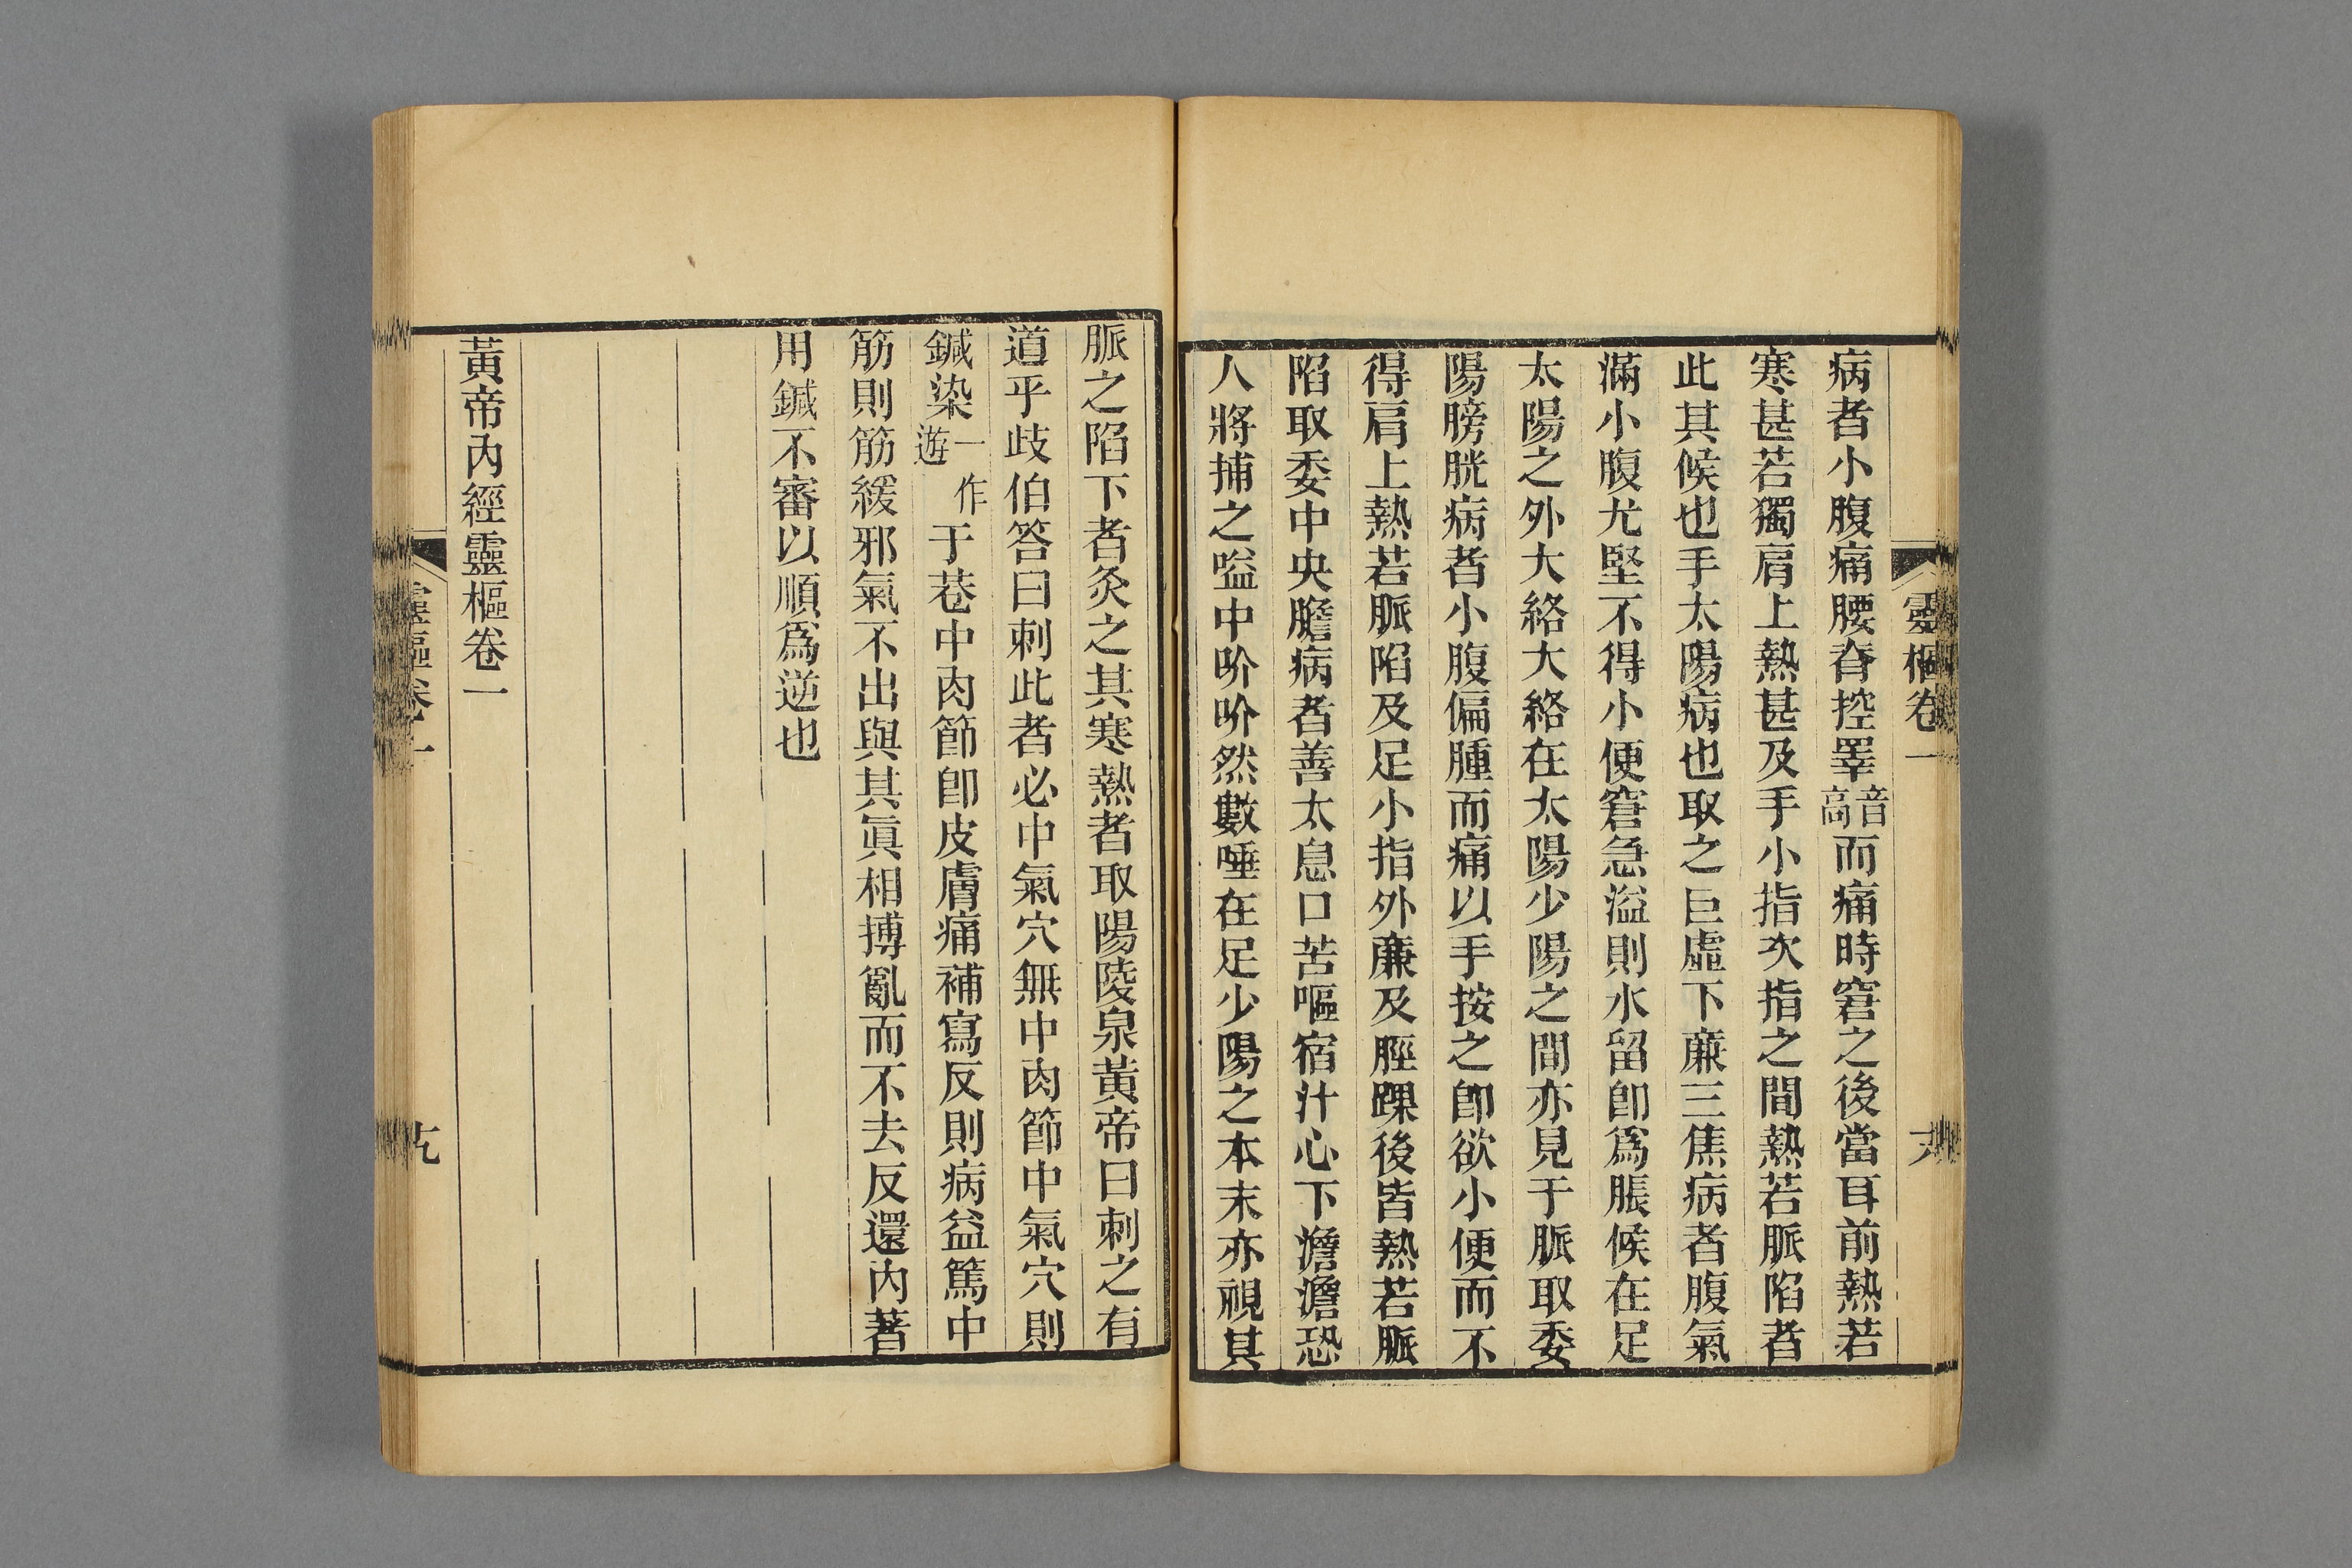 靈樞卷一
病者小腹痛腰脊控睪音高而痛時窘之後當耳前熱若
寒甚若獨肩上熱甚及手小指次指之間熱若脈陷者
此其候也手太陽病也取之巨虛下廉三焦病者腹氣
滿小腹尤堅不得小便窘急溢則水留卽爲脹候在足
太陽之外大絡大絡在太陽少陽之間亦見于脈取委
陽膀胱病者小腹偏腫而痛以手按之卽欲小便而不
得肩上熱若脈陷及足小指外廉及脛踝後皆熱若脈
陷取委中央膽病者善太息口苦嘔宿汁心下澹澹恐
人將捕之嗌中吤吤然數唾在足少陽之本末亦視其
脈之陷下者灸之其寒熱者取陽陵泉黃帝曰刺之有
道乎歧伯答曰刺此者必中氣穴無中肉節中氣穴則
鍼染一作遊于巷中肉節卽皮膚痛補寫反則病益篤中
筋則筋緩邪氣不出與其眞相搏亂而不去反還內著
用鍼不審以順爲逆也
黃帝內經靈樞卷一
靈樞卷一